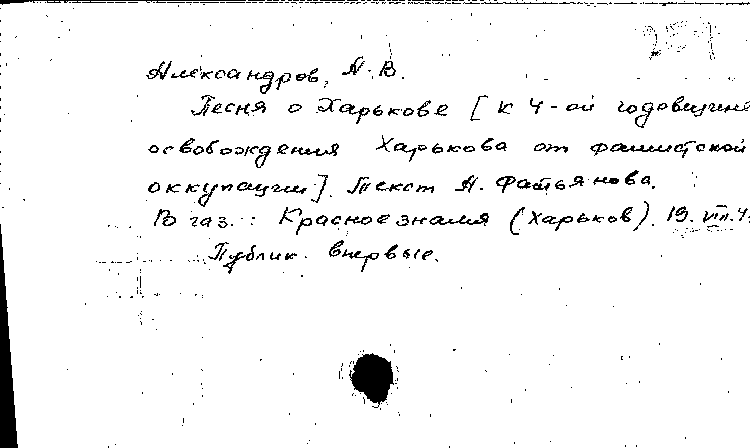 Александров, А. В.
Песня о Харькове [к 4-ой годовщине
освобождения Харькова от фашистской
оккупации]. Текст А. Фатьянова.
В газ.: Красное знамя (Харьков). 19. VIII. 4
Публик. впервые.